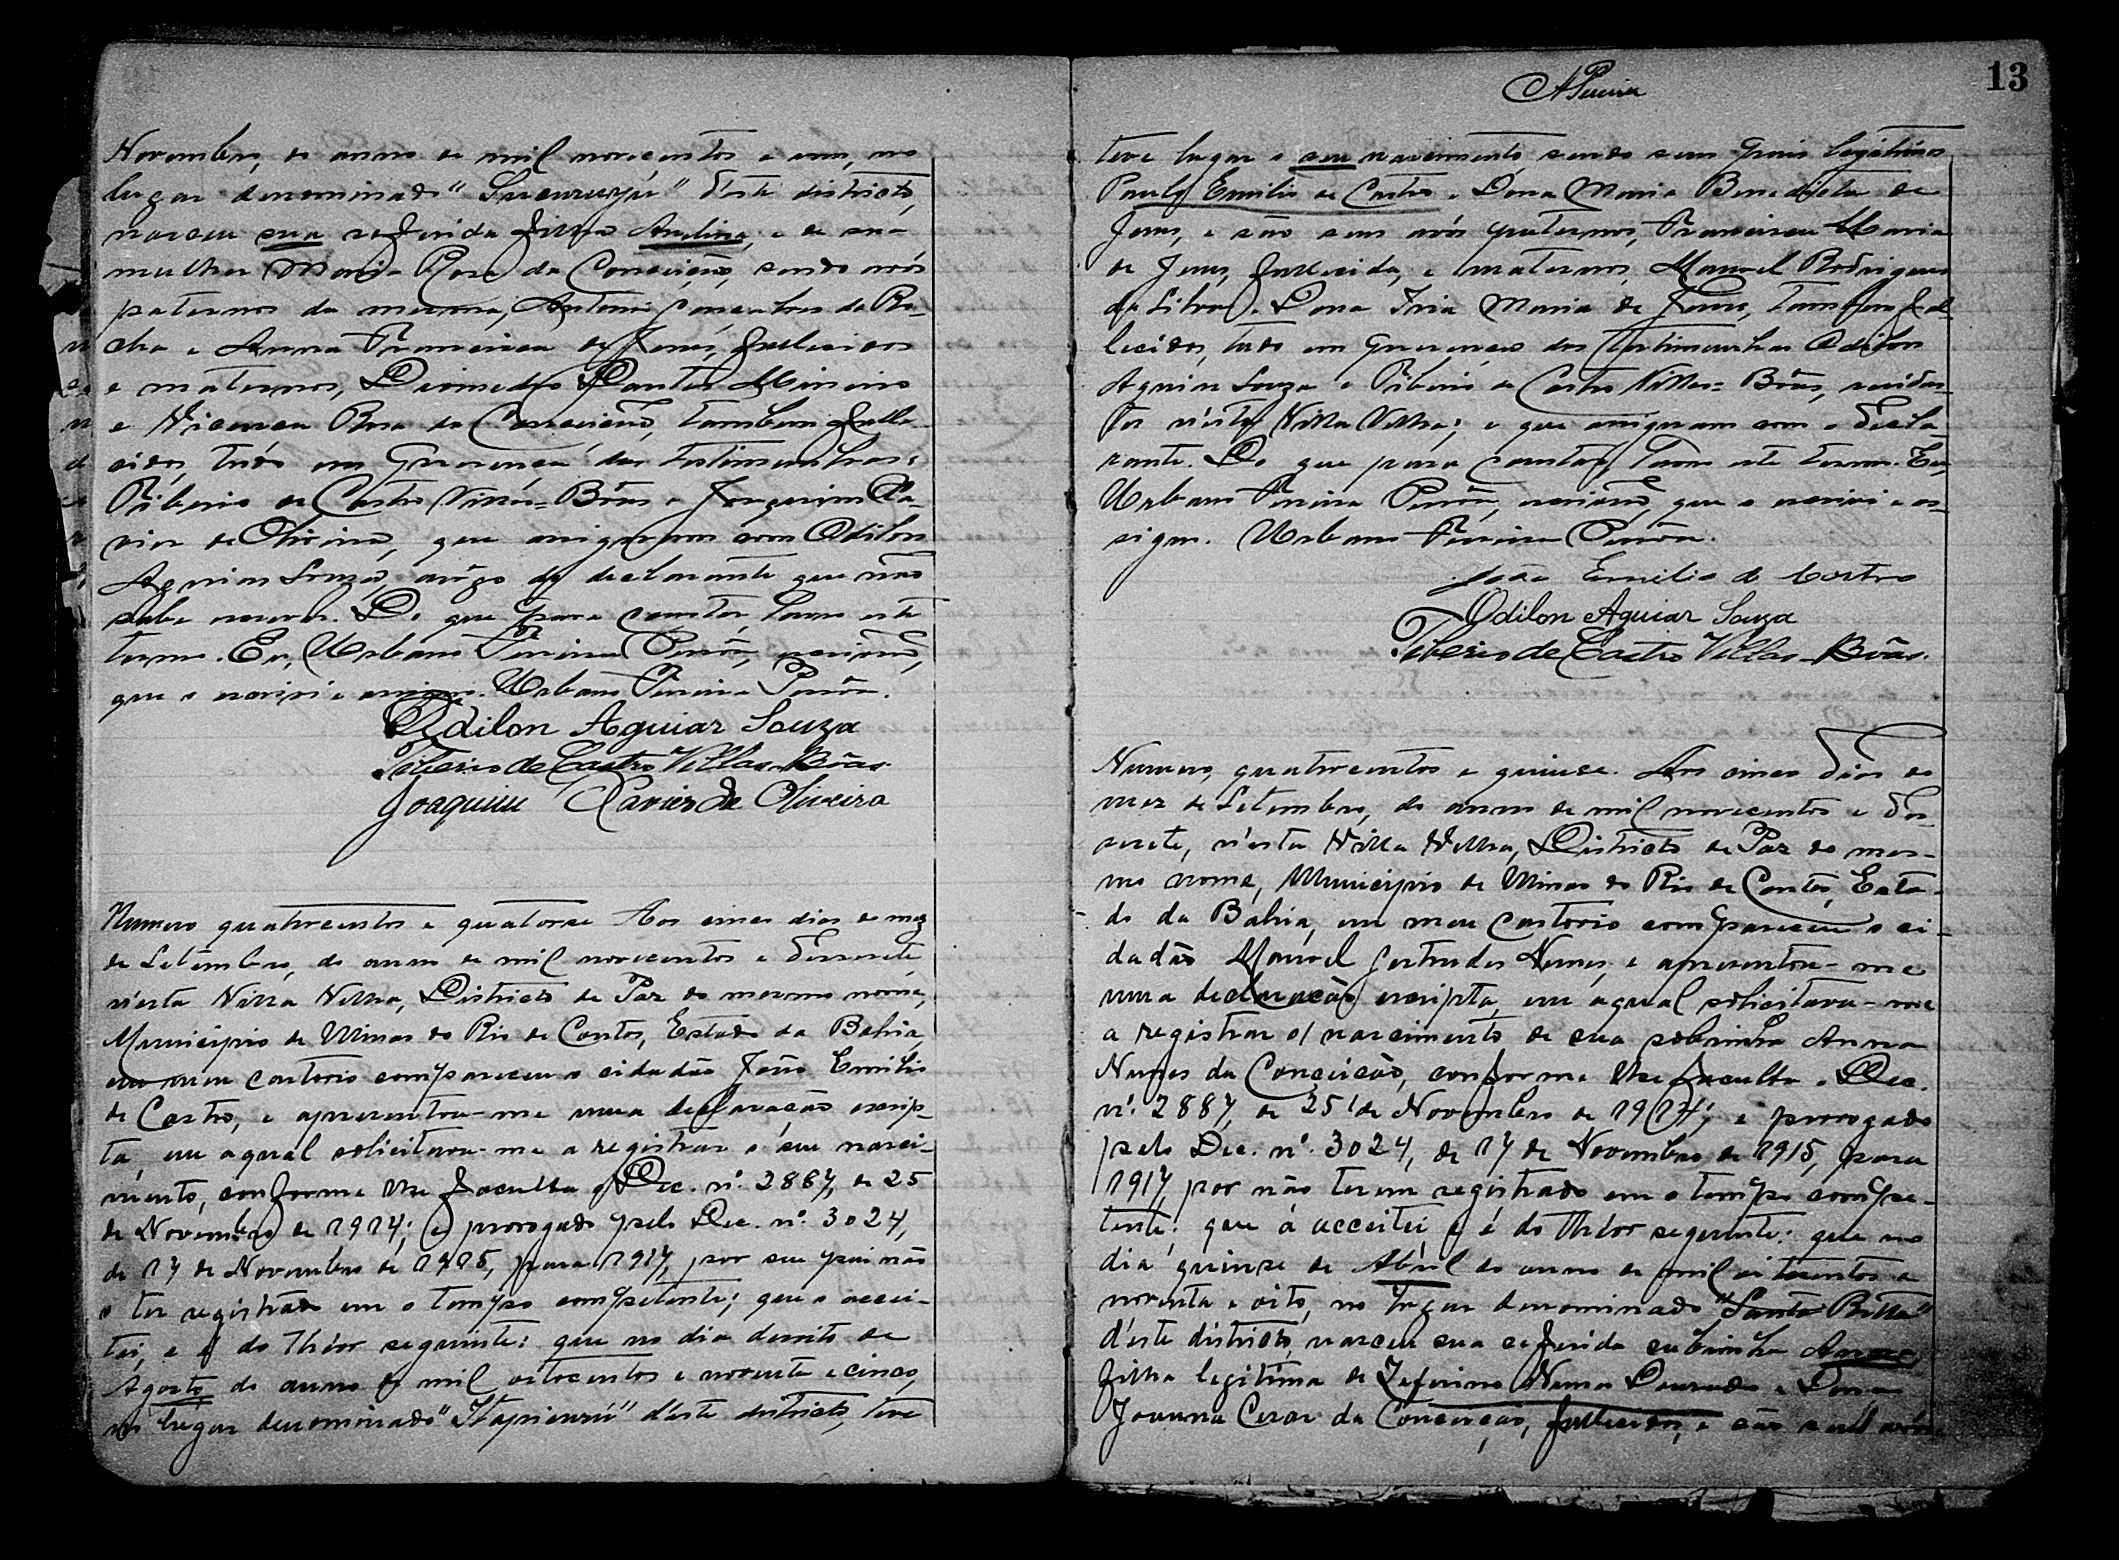 Novembro, do anno de mil novecentos e um, no
lugar denominado "Sucuruyú" d'este districto,
nasceu sua referida filha Avelina, e de sua
mulher Maria Rosa da Conceição, sendo avós
paternos da mesma, Antonio Gonçalves da Ro-
cha e Anna Francisca de Jesus, fallecidos
e maternos, Diomedio Dantas Mineiro
e Vicencia Rosa da Conceição, tambem falle-
cidos, tudo em presença das testimunhas:
Tiberio de Castro Villas-Bôas e Joaquim Xa-
vier de Oliveira, que assignaram com Odilon
Aguiar Souza, arôgo do declarante que não
sabe escrever. Do que para constar, lavro este
termo. Eu, Urbano Pereira Pensôa, escrivão,
que o escrivi e assigno. Urbano Pereira Pensôa.
Odilon Aguiar Souza
Tiberio de Castro Villas-Bôas.
Joaquim Xavier de Oliveira
Numero quatrocentos e quatorse Aos cinco dias do mez
de Setembro, do anno de mil novecentos e desesete,
n'esta Villa Velha, Districto de Paz do mesmo nome,
Municipio de Minas do Rio de Contas, Estado da Bahia,
em meu cartorio compareceu o cidadão João Emilio
de Castro, e apresentou-me uma declaração escrip-
ta, em aqual solicitava-me a registrar o seu nasci-
mento, conforme lhe faculta o Dec. nº. 2887, de 25
de Novembro de 1914; e prorogado pelo Dec. nº. 3024,
de 17 de Novembro de 1915, para 1917, por seu pai não
o ter registrado em o tempo competente; que o accei-
tei, e é do théor seguinte: que no dia desoito de
Agosto do anno de mil oitocentos e noventa e cinco,
no lugar denominado "Itapicurú" d'este districto, teve
13
APereira
teve lugar o seu nascimento, sendo seus pais legitimos
Paulo Emilio de Castro e Dona Maria Benedicta de
Jesus, e são seus avós paternos, Francisca Maria
de Jesus, fallecida, e maternos, Manoel Rodrigues
da Silva e Dona Iria Maria de Jesus, tambem fal-
lecidos, tudo em presença das testimunhas Odilon
Aguiar Souza e Tiberio de Castro Villas-Bôas, residen-
tes n'esta Villa Velha; e que assignam com o decla-
rante. Do que para constar, lavro este termo. Eu,
Urbano Pereira Pensôa, escrivão, que o escrivi e as-
signo. Urbano Pereira Pensôa.
João Emilio de Castro
Odilon Aguiar Souza
Tiberio de Castro Villas-Bôas.
Numero, quatrocentos e quinse. Aos cinco dias do
mez de Setembro, do anno de mil novecentos e des-
esete, n'esta Villa Velha, Districto de Paz do mes-
mo nome, Municipio de Minas do Rio de Contas, Esta-
do da Bahia, em meu cartorio compareceu o ci-
dadão Manoel Gertrudes Nunes, e apresentou-me
uma declaração escripta, em aqual solicitava-me
a registrar o nascimento de sua sobrinha Anna
Nunes da Conceição, conforme lhe faculta o Dec.
nº. 2887, de 25 de Novembro de 1914; e prorogado
pelo Dec. nº. 3024, de 17 de Novembro de 1915, para
1917, por não terem registrado em o tempo compe-
tente; que á acceitei e é do théor seguinte: que no
dia quinze de Abril do anno de mil oitocentos e
noventa e oito, no lugar denominado "Santo Bitta"
d'este districto, nasceu sua referida subrinha Anna,
filha legitima de Zeferino Nunes Dourado e Dona
Joanna Cesar da Conceição, fallecidos, e são seus avós